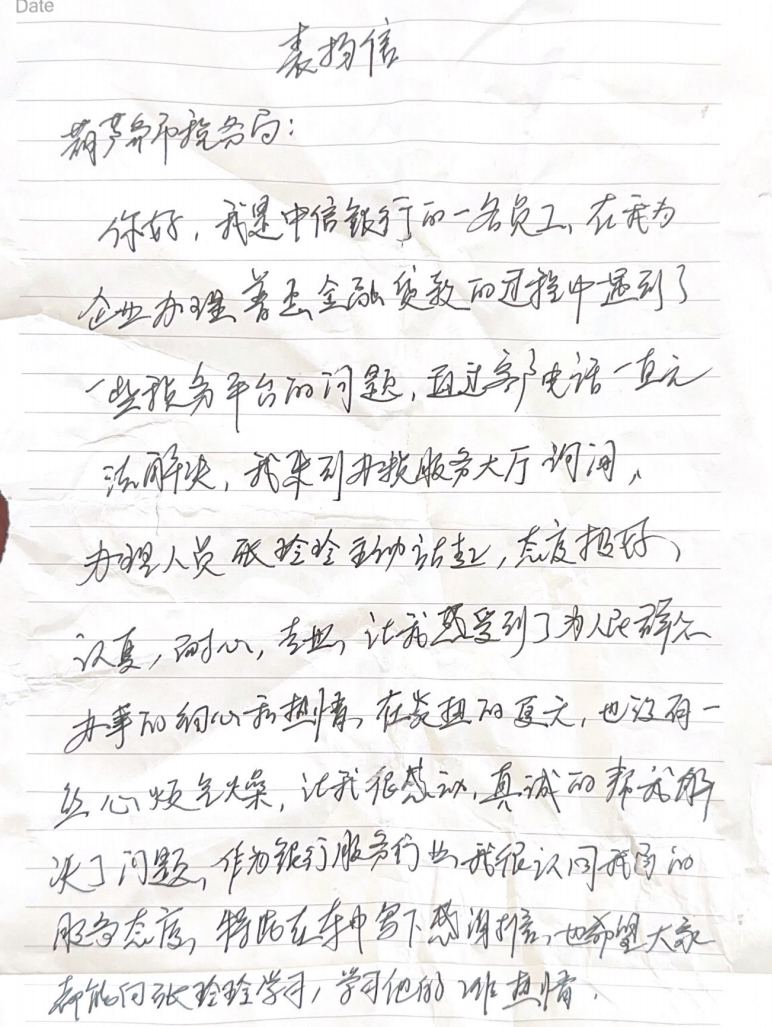 Date
表扬信
葫芦岛市税务局：
你好，我是中信银行的一名员工，在我为
企业办理普惠金融贷款的过程中遇到了
一些税务平台的问题，通过客户电话一直无
法解决，我来到办税服务大厅询问，
办理人员张玲玲主动站起，态度极好，
认真，耐心，专业，让我感受到了为人民群众
办事的细心和热情，在炎热的夏天，也没有一
丝心烦气燥，让我很感动，真诚的帮我解
决了问题，作为银行服务行业，我很认同我国的
服务态度，特此在车中写下感谢信，也希望大家
都能向张玲玲学习，学习他的热情。